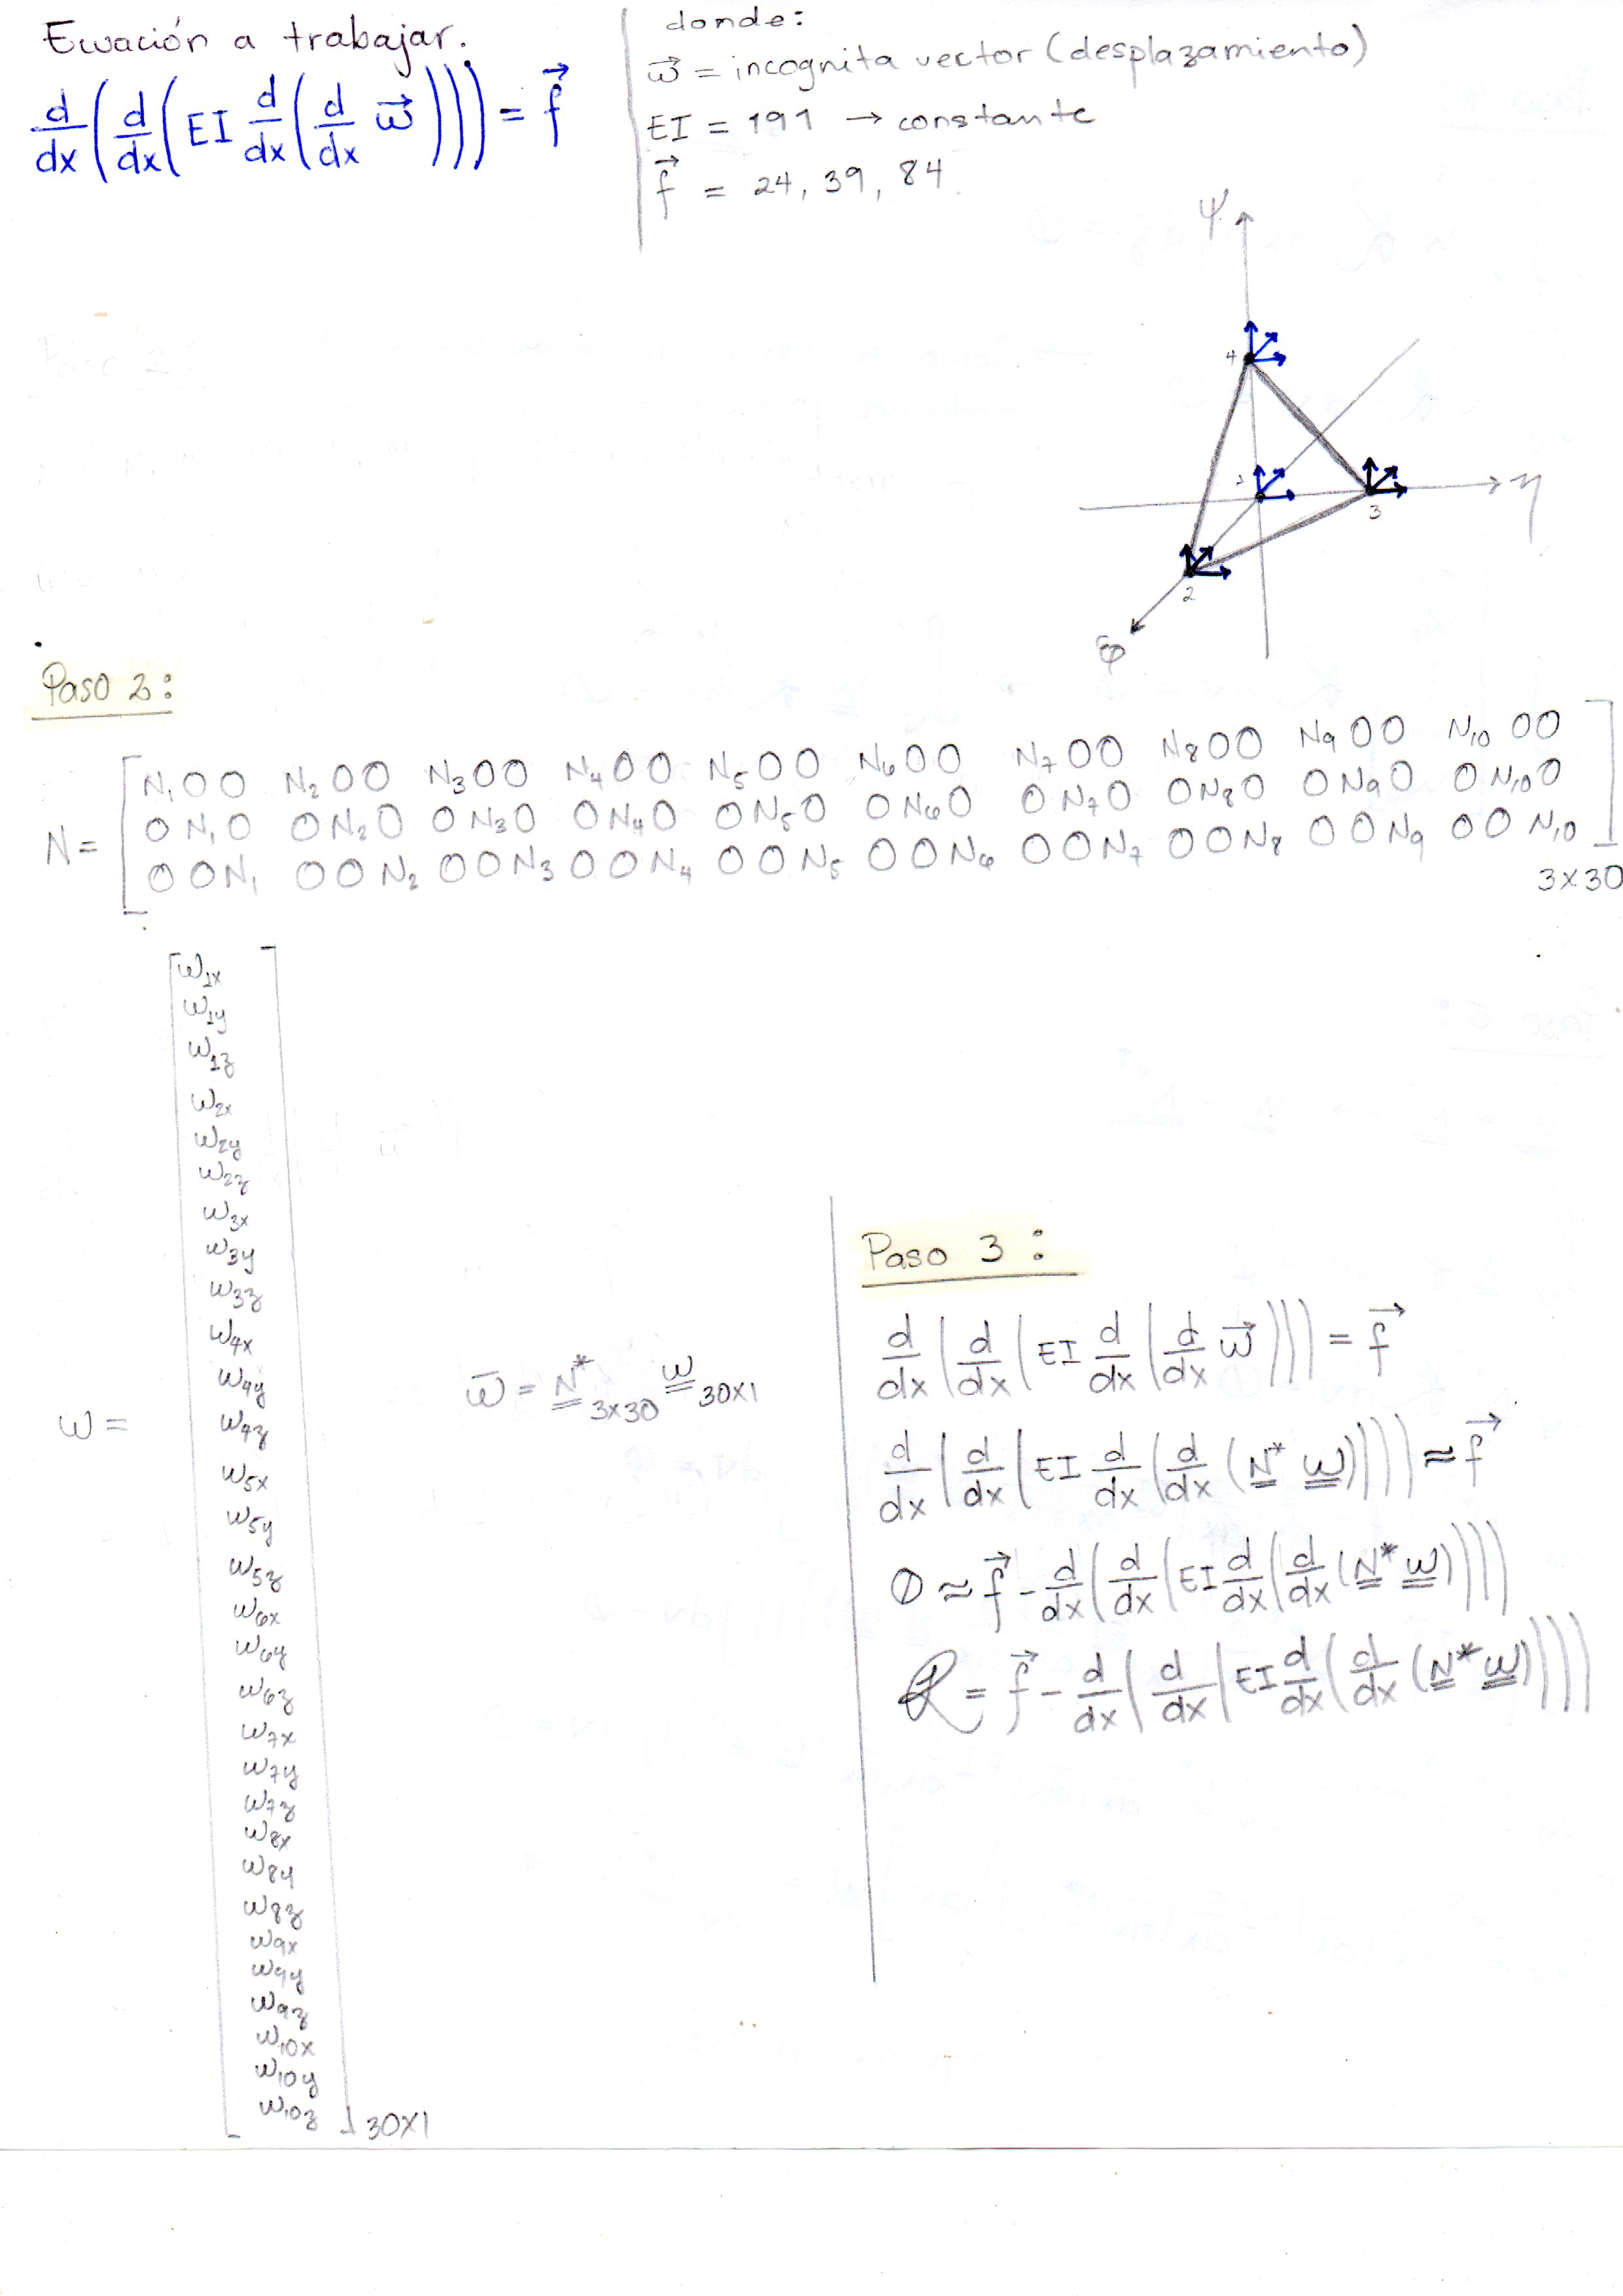 Ecuación a trabajar.
d/dx (d/dx (EI d/dx (d/dx w⃗))) = f⃗
donde:
w⃗ = incognita vector (desplazamiento)
EI = 191 → constante
f⃗ = 24, 39, 84.
ψ
4
1
η
3
2
φ
Paso 2:
N =
N₁ 0 0 N₂ 0 0 N₃ 0 0 N₄ 0 0 N₅ 0 0 N₆ 0 0 N₇ 0 0 N₈ 0 0 N₉ 0 0 N₁₀ 0 0
0 N₁ 0 0 N₂ 0 0 N₃ 0 0 N₄ 0 0 N₅ 0 0 N₆ 0 0 N₇ 0 0 N₈ 0 0 N₉ 0 0 N₁₀ 0
0 0 N₁ 0 0 N₂ 0 0 N₃ 0 0 N₄ 0 0 N₅ 0 0 N₆ 0 0 N₇ 0 0 N₈ 0 0 N₉ 0 0 N₁₀
3x30
w =
w1x
w1y
w1z
w2x
w2y
w2z
w3x
w3y
w3z
w4x
w4y
w4z
w5x
w5y
w5z
w6x
w6y
w6z
w7x
w7y
w7z
w8x
w8y
w8z
w9x
w9y
w9z
w10x
w10y
w10z
30x1
w̄ = N* 3x30 w 30x1
Paso 3:
d/dx (d/dx (EI d/dx (d/dx w⃗))) = f⃗
d/dx (d/dx (EI d/dx (d/dx (N* w)))) ≈ f⃗
0 ≈ f⃗ - d/dx (d/dx (EI d/dx (d/dx (N* w))))
R = f⃗ - d/dx (d/dx (EI d/dx (d/dx (N* w))))